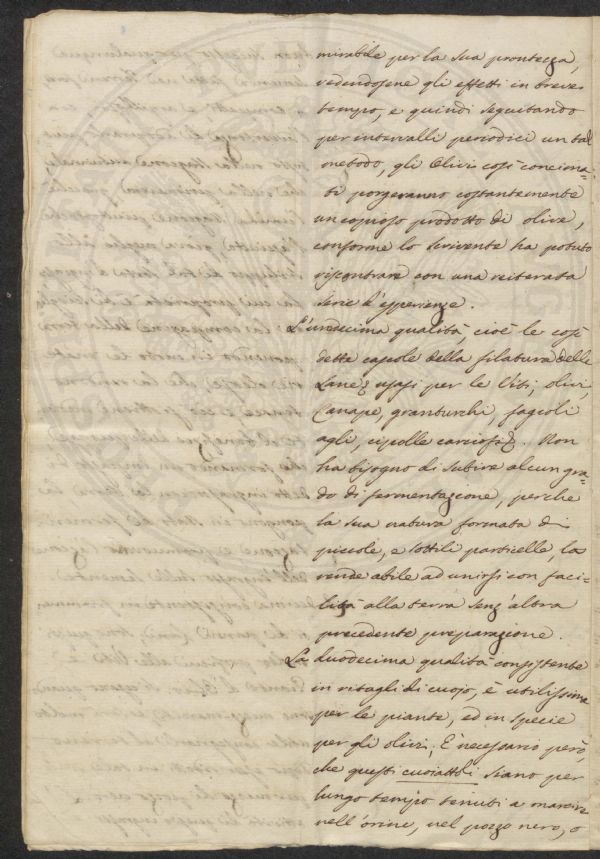 mirabile per la sua prontezza,
vedendosene gli effetti in breve
tempo, e quindi seguitando
per intervalli periodici un tal
metodo, gli Olivi così concima=
ti porgeranno costantemente
un copioso prodotto di olive,
conforme lo scrivente ha potuto
riscontrare con una reiterata
serie d'esperienze.
L'undecima qualità, cioè le così
dette cascole della filatura delle
Lane usasi per le Viti, olivi,
Canape, granturchi, fagioli
agli, cipolle carciofi. Non
ha bisogno di subire alcun gra=
do di fermentazione, perche
la sua natura formata di
piccole, e sottili particelle, la
rende abile ad unirsi con faci=
lità alla terra senz'altra
precedente preparazione.
La duodecima qualità consistente
in ritagli di cuojo, è utilissima
per le piante, ed in specie
per gli olivi; È necessario però,
che questi cuoiattoli siano per
lungo tempo tenuti a marcire
nell'orine, nel pozzo nero, o